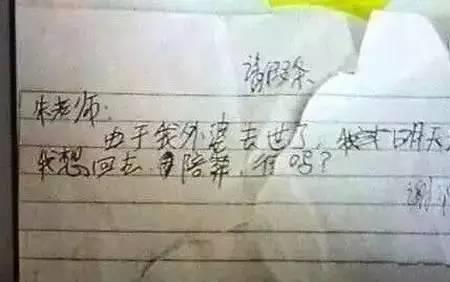 请假条
朱老师:
由于我外婆去世了,我 明天
我想回去 陪葬,行吗?
谢